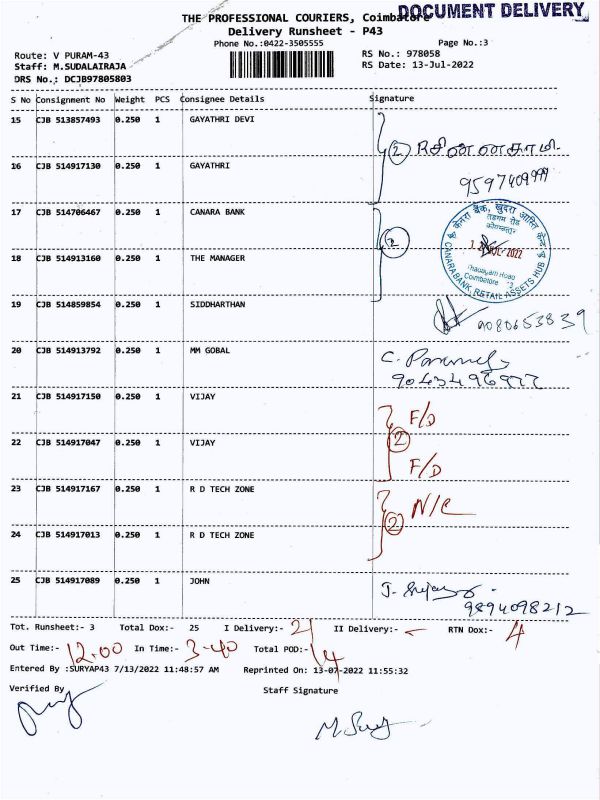 DOCUMENT DELIVERY
THE PROFESSIONAL COURIERS, Coimbatore
Delivery Runsheet - P43
Phone No.:0422-3505555
Page No.:3
Route: V PURAM-43
RS No.: 978058
Staff: M.SUDALAIRAJA
RS Date: 13-Jul-2022
DRS No.: DCJB97805803
S No Consignment No Weight PCS Consignee Details Signature
15 CJB 513857493 0.250 1 GAYATHRI DEVI
2
16 CJB 514917130 0.250 1 GAYATHRI
17 CJB 514706467 0.250 1 CANARA BANK
2
18 CJB 514913160 0.250 1 THE MANAGER
CANARA BANK RETAIL ASSETS HUB
Coimbatore
19 CJB 514859854 0.250 1 SIDDHARTHAN
9080653839
20 CJB 514913792 0.250 1 MM GOBAL
21 CJB 514917150 0.250 1 VIJAY F/D
2
22 CJB 514917047 0.250 1 VIJAY F/D
23 CJB 514917167 0.250 1 R D TECH ZONE N/C
2
24 CJB 514917013 0.250 1 R D TECH ZONE
25 CJB 514917089 0.250 1 JOHN
9894098212
Tot. Runsheet:- 3 Total Dox:- 25 I Delivery:- 21 II Delivery:- - RTN Dox:- 4
Out Time:- 12.00 In Time:- 3-40 Total POD:- 14
Entered By :SURYAP43 7/13/2022 11:48:57 AM Reprinted On: 13-07-2022 11:55:32
Verified By
Staff Signature